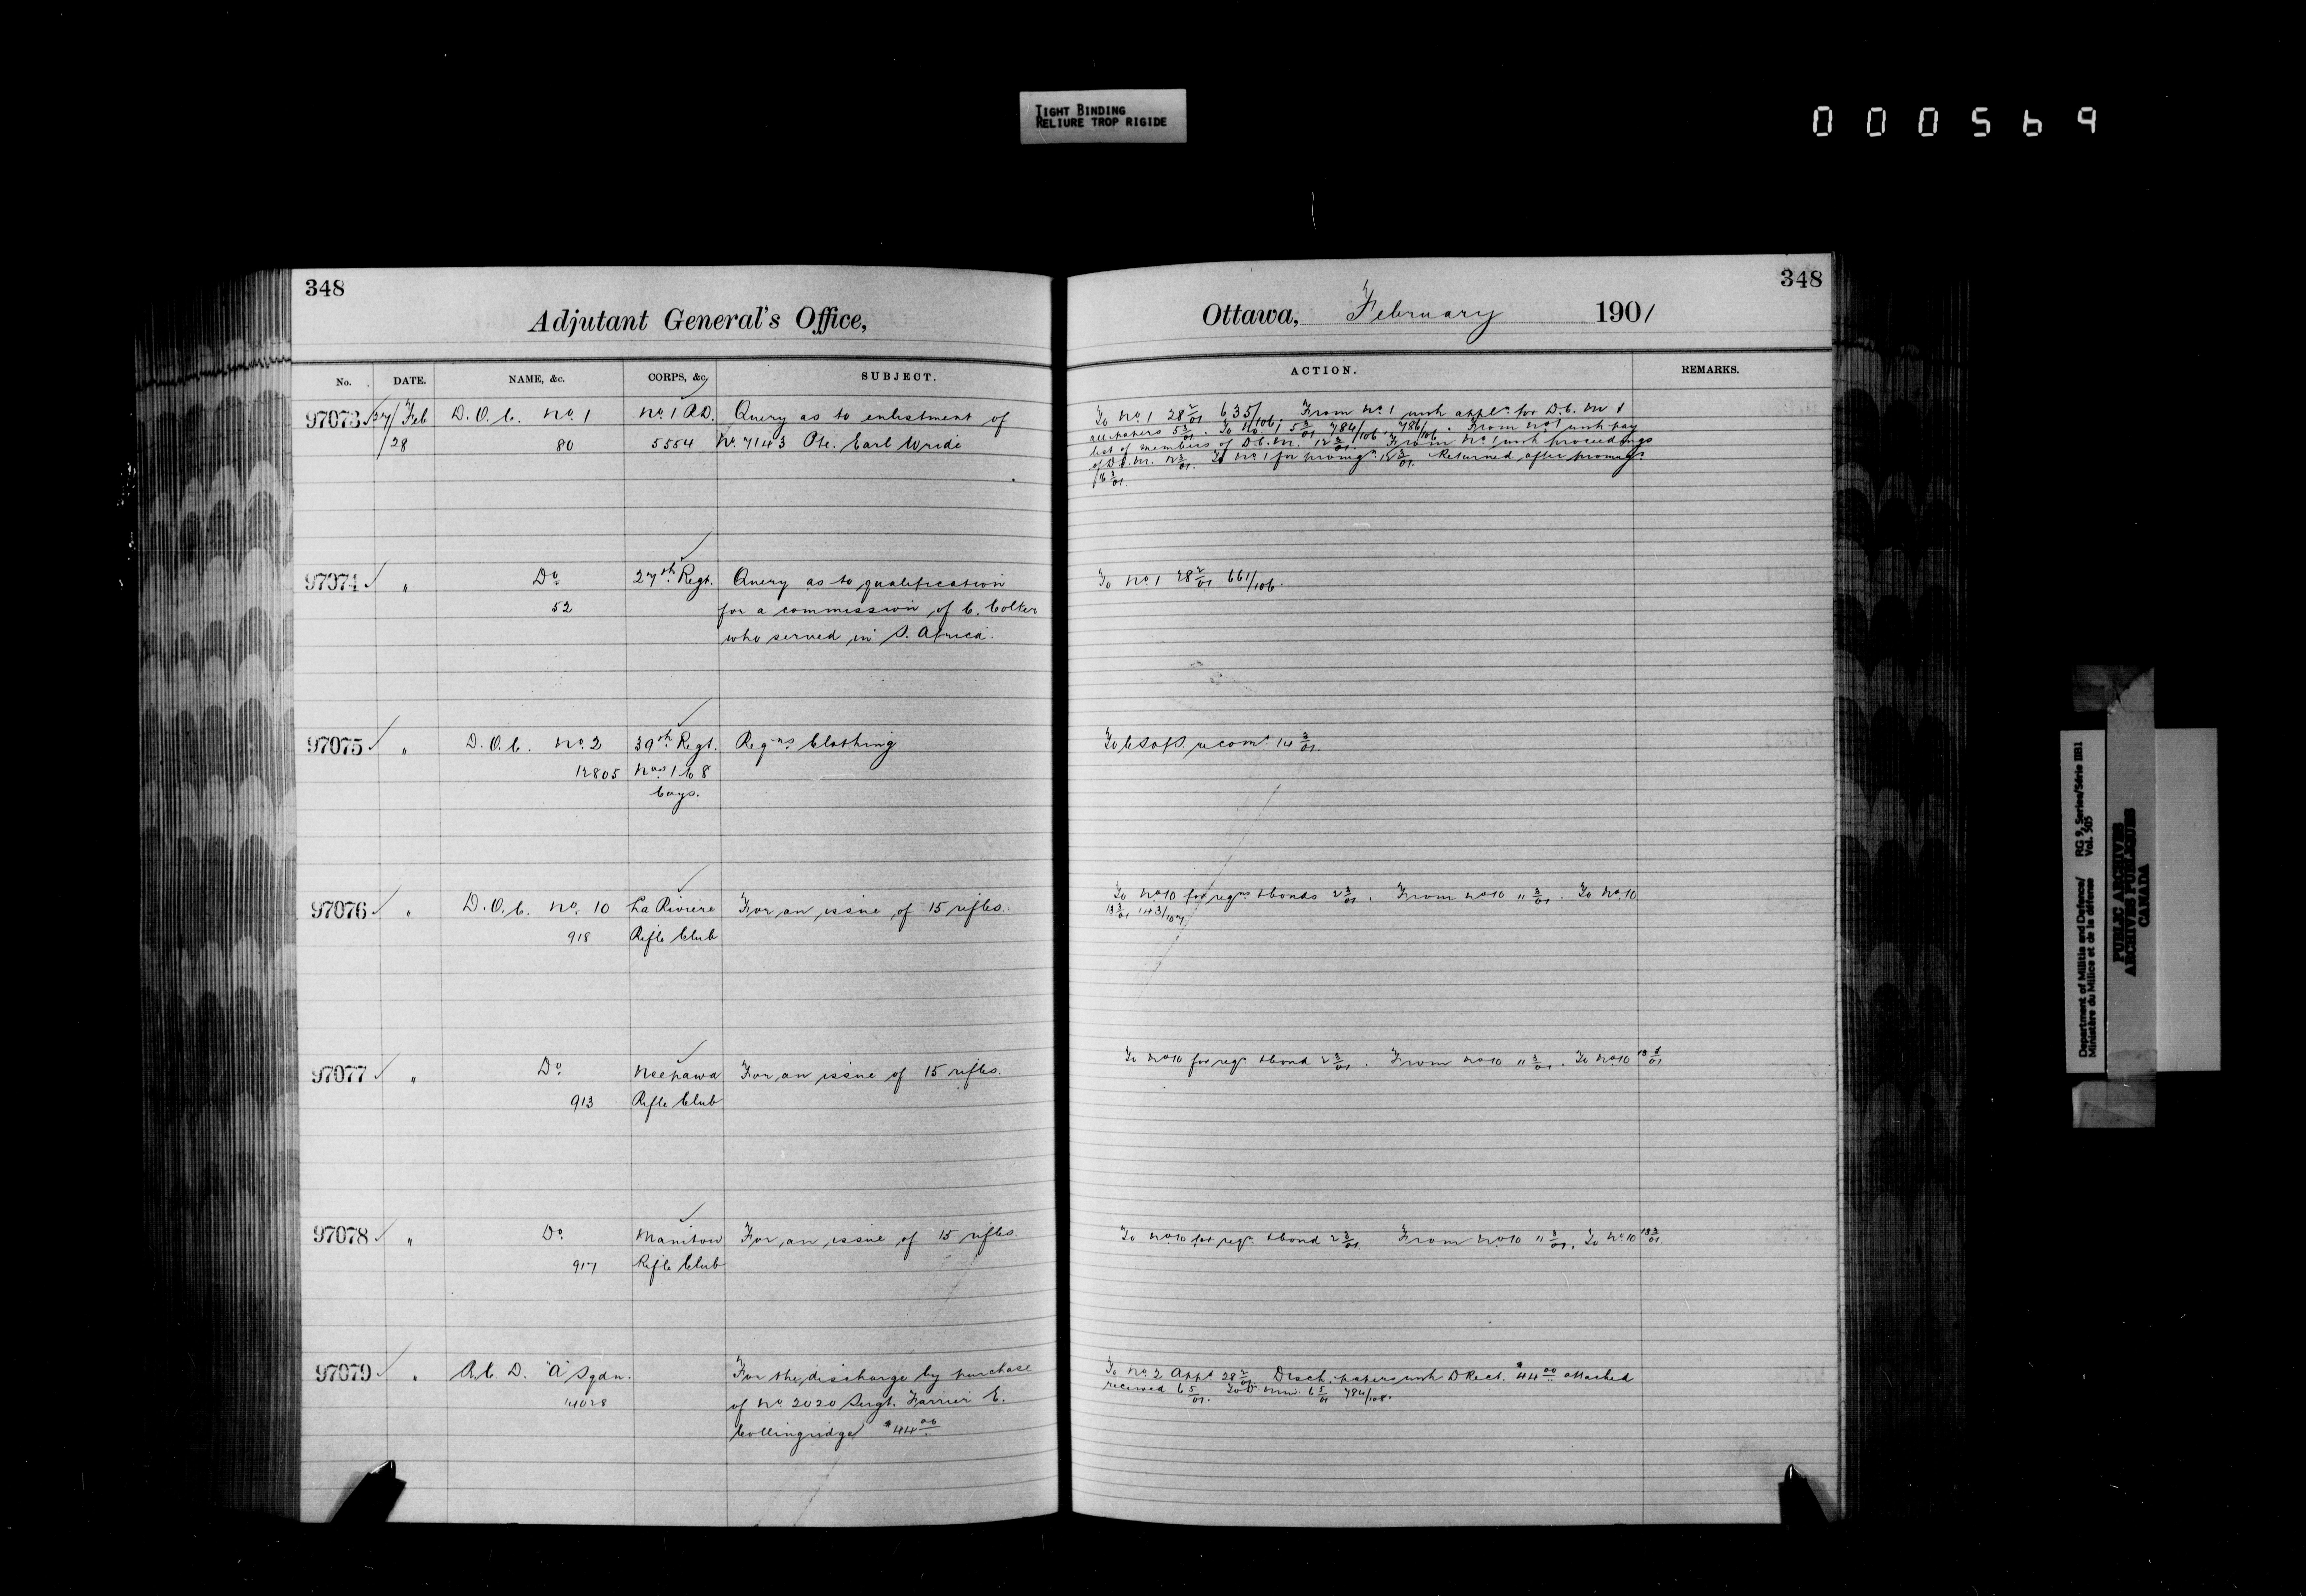 TIGHT BINDING
RELIURE TROP RIGIDE
000569
348
Adjutant General's Office,
No. DATE. NAME, &c. CORPS, &c. SUBJECT.
97073 27/Feb D.O.C. No. 1 No. 1 R.D. Query as to enlistment of
/28 80 5554 No. 7143 Pte. Earl Wride
97074 " Do. 27th Regt. Query as to qualification
52 for a commission of C. Colter
who served in S. Africa.
97075 " D.O.C. No. 2 39th Regt. Reqns. Clothing
12805 Nos. 1 to 8
Coys.
97076 " D.O.C. No. 10 La Riviere For an issue of 15 rifles.
918 Rifle Club
97077 " Do. Neepawa For an issue of 15 rifles.
913 Rifle Club
97078 " Do. Manitou For an issue of 15 rifles.
917 Rifle Club
97079 " R.C.D. "A" Sqdn. For the discharge by purchase
14028 of No. 2020 Sergt. Farrier E.
Collingridge $44.00
348
Ottawa, February 1901
ACTION. REMARKS.
To No. 1 28 2/01 635/106. From No. 1 with appln. for D.C.M. &
all papers 5 3/01. To No. 1 5 3/01 784/106, 786/106. From No. 1 with
list of members of D.C.M. 12 3/01. From No. 1 with proceedings
of D.C.M. To No. 1 for promgn. Returned after promgn.
16 3/01.
To No. 1 28 2/01 661/106.
To C.S. of S. recomd. 14 3/01.
To No. 10 for reqns. & bonds 2 3/01. From No. 10 11 3/01. To No. 10
13 3/01 143/107
To No. 10 for reqn. & bond 2 3/01. From No. 10 11 3/01. To No. 10 13 3/01
To No. 10 for reqn. & bond 2 3/01. From No. 10 11 3/01. To No. 10 13 3/01.
To No. 2 Appd. 28 2/01. Disch. papers with D Rect. $44.00 attached
received 6 5/01. 6 5/01 784/108.
Department of Militia and Defence/ RG 9, Series/Série IIB1
Ministère du Milice et de la défense Vol. 505
PUBLIC ARCHIVES
ARCHIVES PUBLIQUES
CANADA